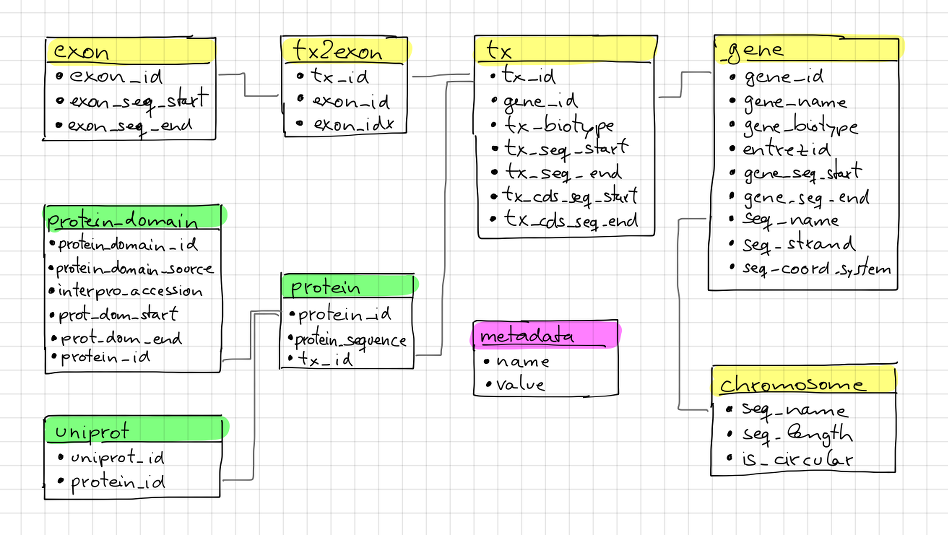 exon
• exon_id
• exon_seq_start
• exon_seq_end
tx2exon
• tx_id
• exon_id
• exon_idx
tx
• tx_id
• gene_id
• tx_biotype
• tx_seq_start
• tx_seq_end
• tx_cds_seq_start
• tx_cds_seq_end
gene
• gene_id
• gene_name
• gene_biotype
• entrezid
• gene_seq_start
• gene_seq_end
• seq_name
• seq_strand
• seq_coord_system
protein_domain
• protein_domain_id
• protein_domain_source
• interpro_accession
• prot_dom_start
• prot_dom_end
• protein_id
protein
• protein_id
• protein_sequence
• tx_id
metadata
• name
• value
chromosome
• seq_name
• seq_length
• is_circular
uniprot
• uniprot_id
• protein_id